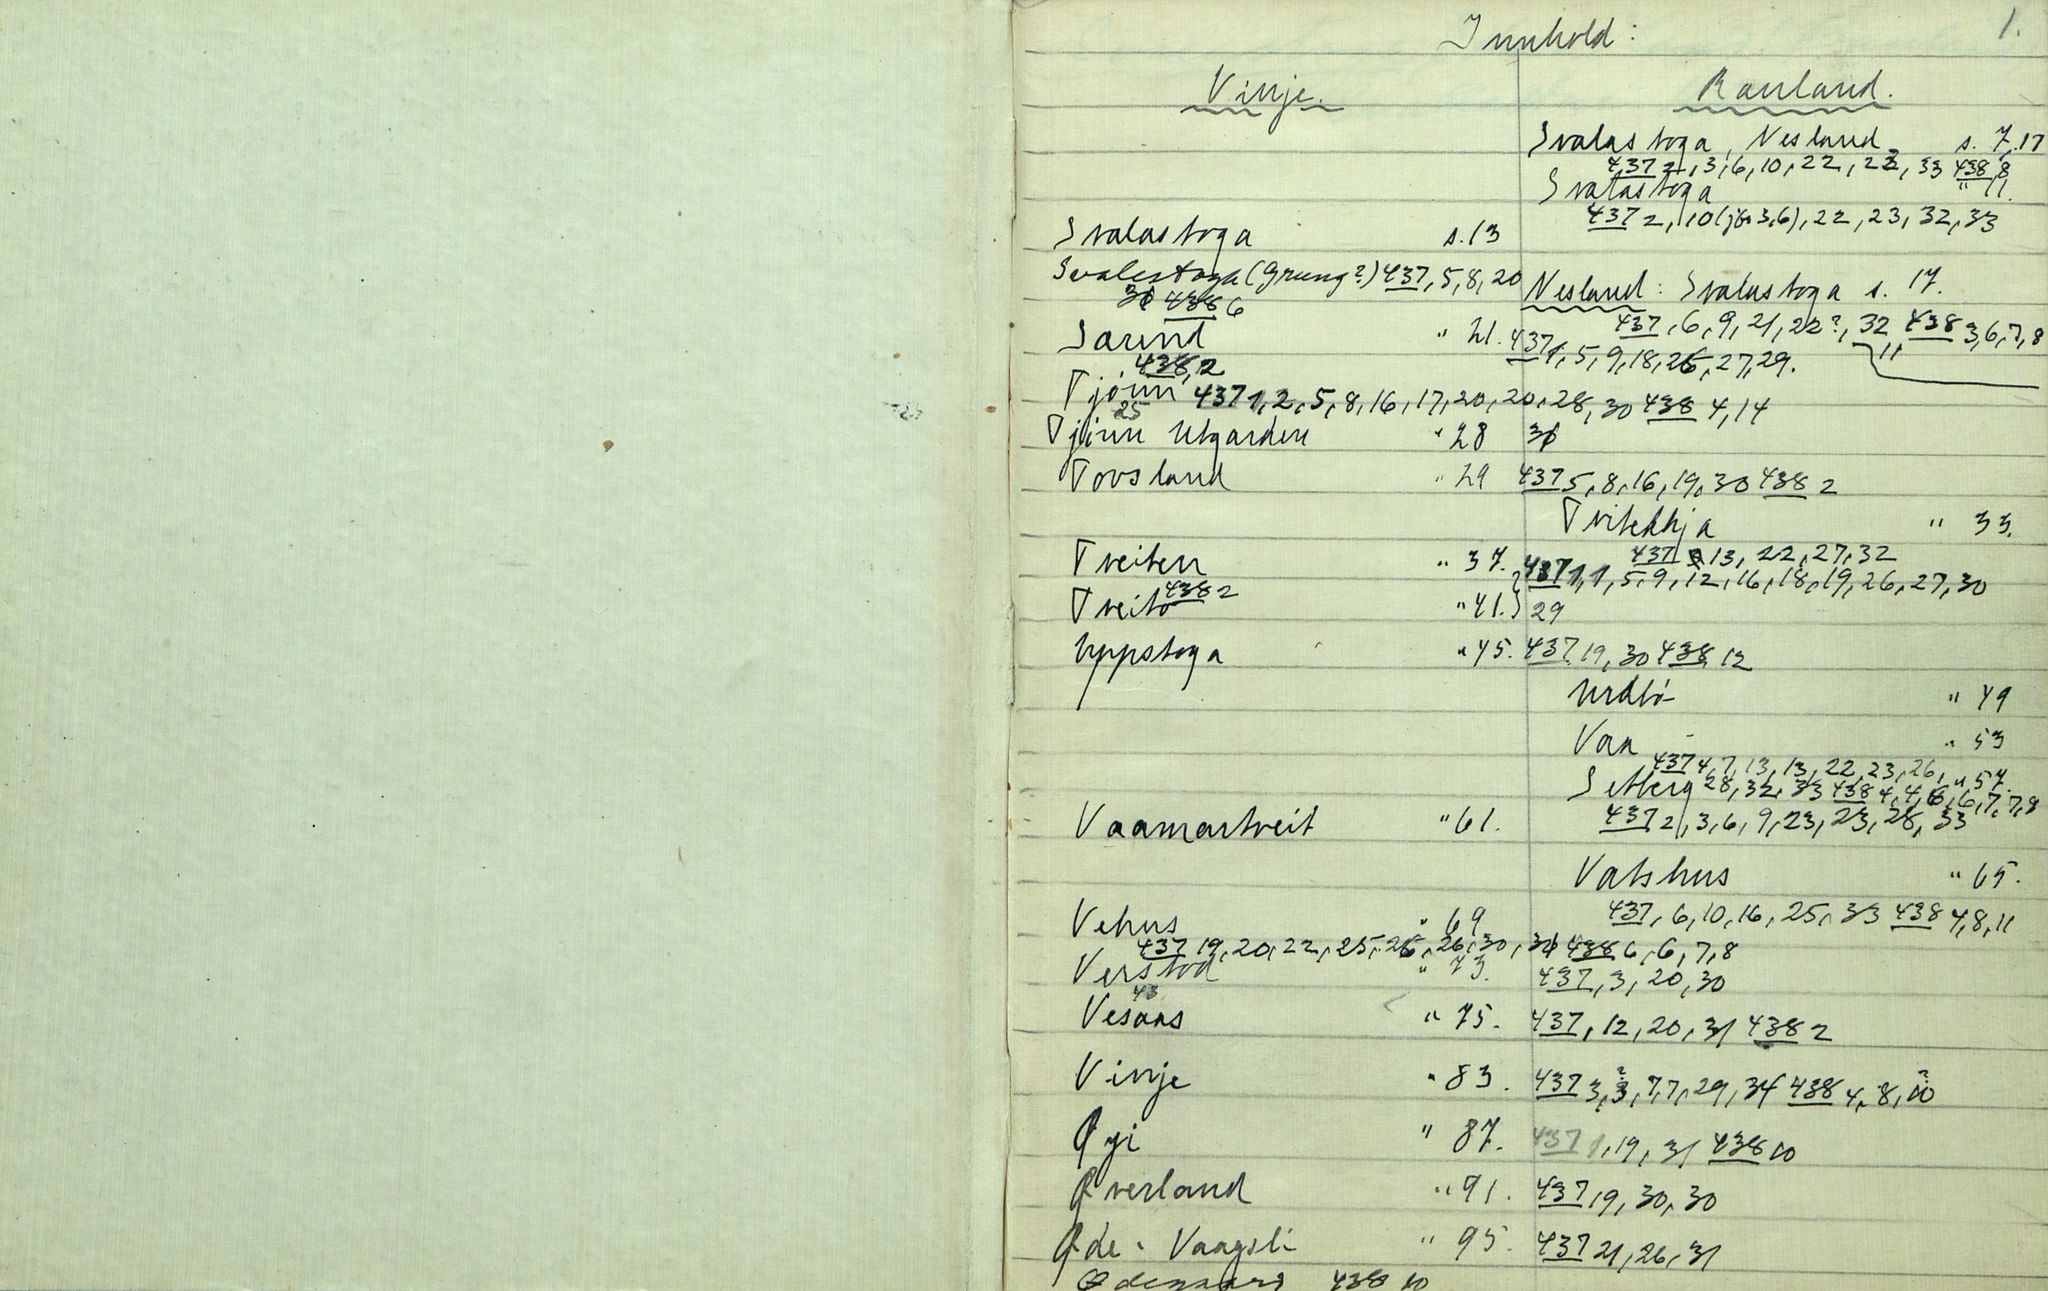 1.
Innhold:
Vinje. Rauland.
Svalastoga, Nesland s. 7, 17
437 2, 3, 6, 10, 22, 22, 33 438 8
Svalastoga " 11.
437 2, 10 (jfr 3, 6), 22, 23, 32, 33
Svalastoga s. 13
Svalestoga (Grung?) 437, 5, 8, 20
438 6
Nesland: Svalastoga s. 17.
437, 6, 9, 21, 22?, 32 438 3, 6, 7, 8
11
Sarind " 21. 437 1, 5, 9, 18, 26, 27, 29.
438, 2
Tjønn 437 1, 2, 5, 8, 16, 17, 20, 20, 28, 30 438 4, 14
25
Tjønn Utgarden " 28
Tovsland " 29 437 5, 8, 16, 19, 30 438 2
Tvitekkja " 33.
437 13, 22, 27, 32
Tveiten " 37. 437 1, 1, 5, 9, 12, 16, 18, 19, 26, 27, 30
438 2
Tveito " 41. 29
Uppstoga " 45. 437 19, 30 438 12
Urdbø " 49
Vaa " 53
437 4, 7, 13, 13, 22, 23, 26,
28, 32, 33 438 4, 4, 6, 6, 7, 7, 8
Setberg " 57.
437 2, 3, 6, 9, 23, 23, 28, 33
Vaamartveit " 61.
Vatshus " 65.
437, 6, 10, 16, 25, 33 438 4, 8, 11
Vehus " 69
437 19, 20, 22, 25, 26, 26, 30, 438 6, 6, 7, 8
Verstod " 73. 437, 3, 20, 30
43
Vesaas " 75. 437, 12, 20, 31 438 2
Vinje " 83. 437 3, 3?, 7, 7, 29, 34 438 4, 8, 10?
Øyi " 87. 437 1, 19, 31 438 10
Øverland " 91. 437 19, 30, 30
Øde-Vaagsli " 95. 437 21, 26, 31
Ødegaard 438 10